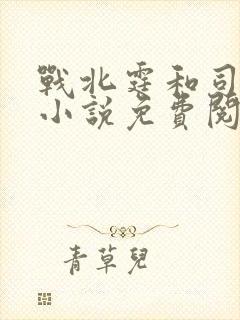 戰北霆和司
小說免費閱
青草兒